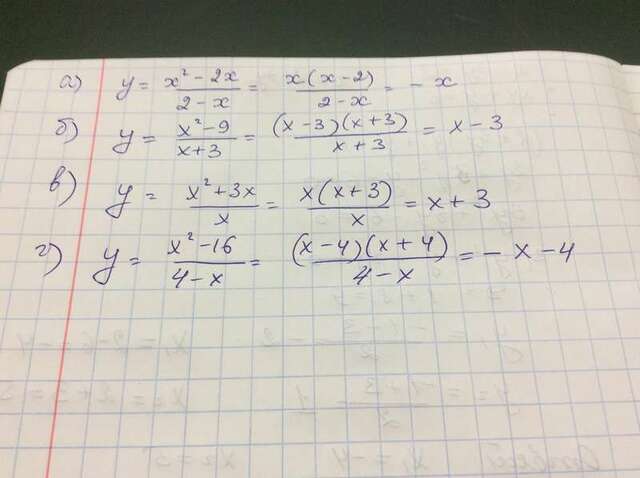 а) y = x² - 2x / 2 - x = x(x - 2) / 2 - x = - x
б) y = x² - 9 / x + 3 = (x - 3)(x + 3) / x + 3 = x - 3
в) y = x² + 3x / x = x(x + 3) / x = x + 3
г) y = x² - 16 / 4 - x = (x - 4)(x + 4) / 4 - x = - x - 4